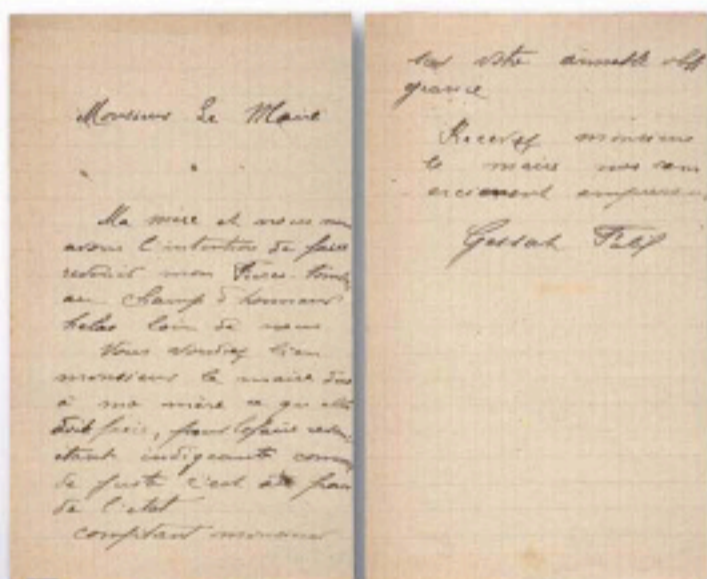 Monsieur Le Maire
Ma mère et nous
avons l'intention de faire
mon Frère tombé
au Champ d'honneur
helas loin de nous
Vous voudrez bien
monsieur le maire dire
à ma mère ce qu'elle
doit faire, pour le faire
etant indigeante comme
de juste c'est au frais
de l'etat
comptant monsieur
sur votre aimable obli
geance
Recevez monsieur
le maire nos rem
erciement